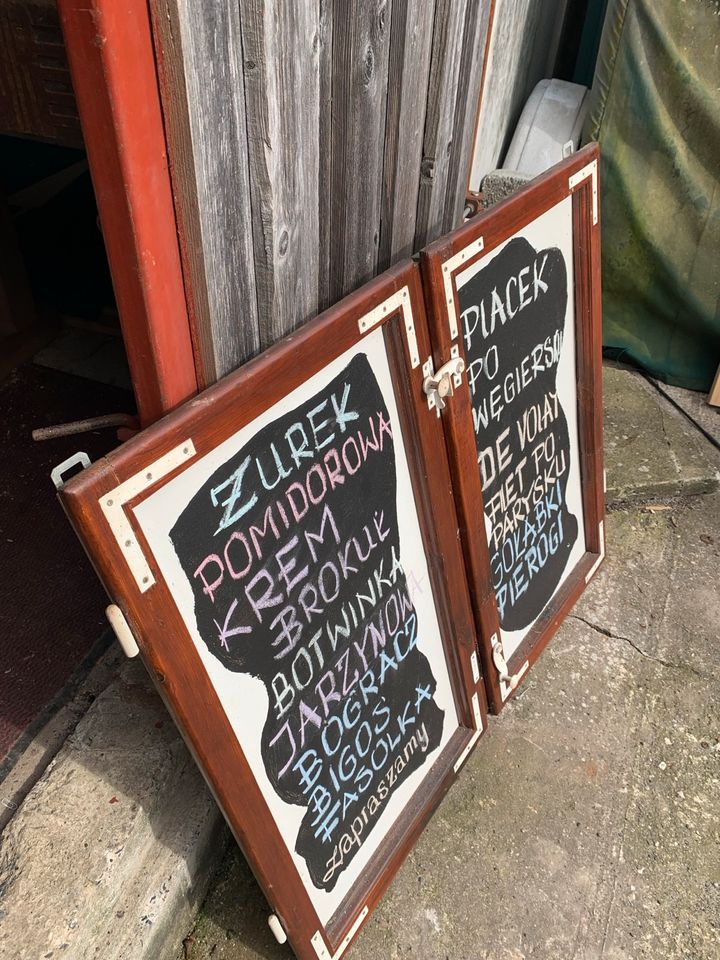 ŻUREK
POMIDOROWA
KREM
BROKUŁ
BOTWINKA
JARZYNOWA
BOGRACZ
BIGOS
FASOLKA
Zapraszamy
PLACEK
PO
WĘGIERSKU
DE VOLAY
FILET PO
PARYSKU
GOŁĄBKI
PIEROGI